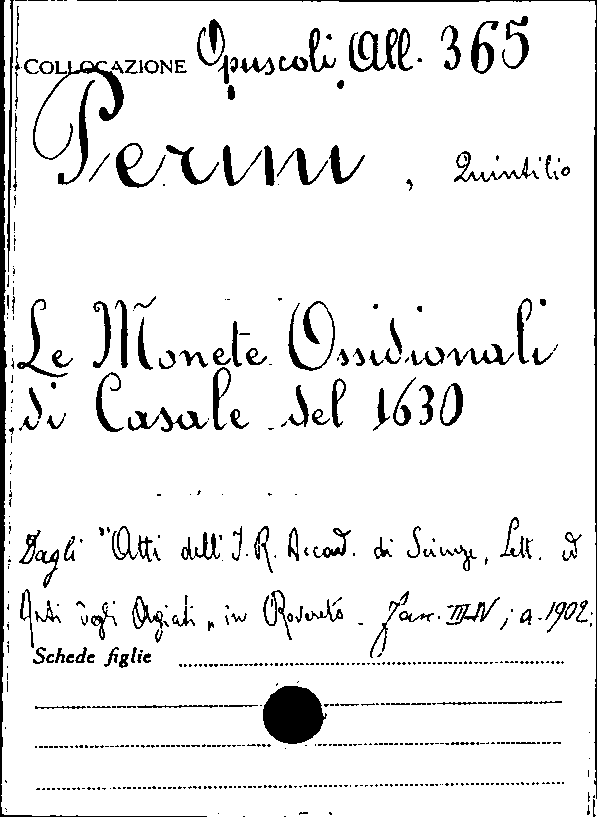 COLLOCAZIONE Opuscoli All. 365
Perini, Quintilio
Le Monete Ossidionali
di Casale del 1630
Dagli "Atti dell'I. R. Accad. di Scienze, Lett. ed
Arti degli Agiati" in Rovereto. Fasc. III-IV; a. 1902.
Schede figlie